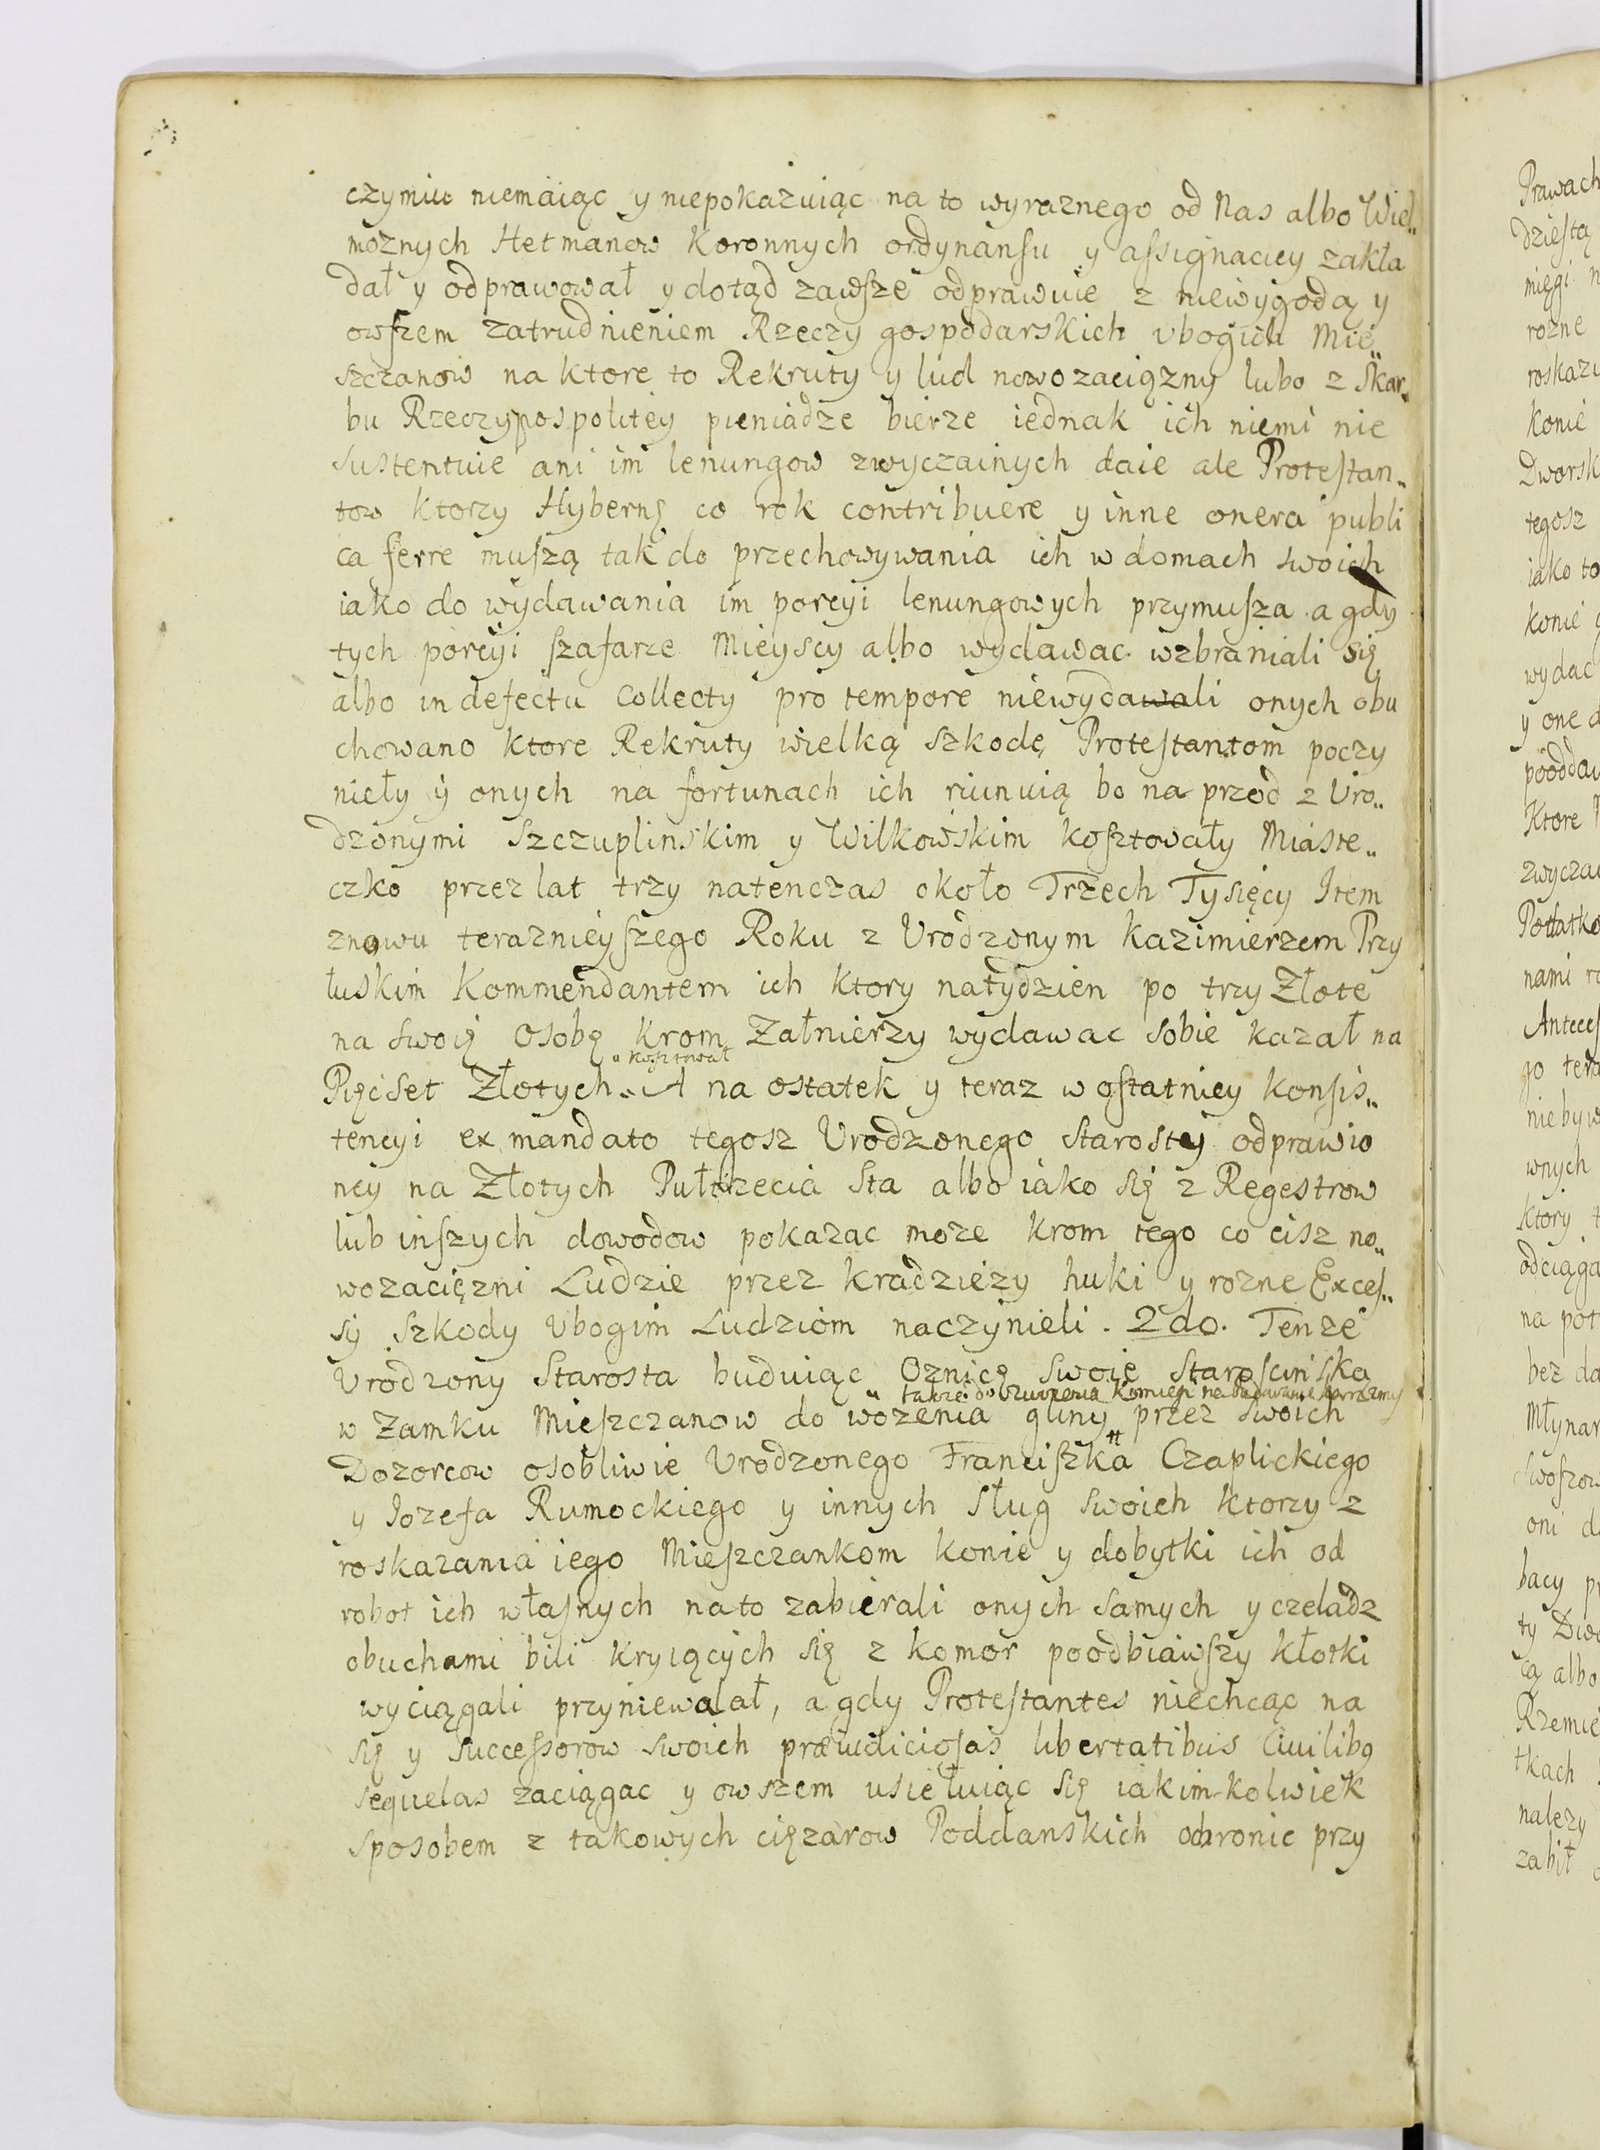 czyniu niemaiąc y niepokazuiąc na to wyraznego od Nas albo Wiel„
moznych Hetmanow Koronnych ordynansu y assignaciey zakła
dał y odprawował y dotąd zawsze odprawuie z niewygodą y
owszem zatrudnieniem Rzeczy gospodarskich Vbogich Mie„
szczanow na ktore to Rekruty y lud nowo zaciązny lubo z Skar„
bu Rzeczypospolitey pieniadze bierze iednak ich niemi nie
sustentuie ani im lenungow zwyczainych daie ale Protestan„
tow ktorzy Hybernę co rok contribuere y inne onera publi
ca ferre muszą tak do przechowywania ich w domach swoich
iako do wydawania im porcyi lenungowych przymusza a gdy
tych porcyi szafarze Mieyscy albo wydawac wzbraniali się
albo in defectu Collecty pro tempore niewydawali onych obu
chowano ktore Rekruty wielką szkodę Protestantom poczy
nieły y onych na fortunach ich riunuią bo na przod z Vro„
dzonymi Szczuplinskim y Wilkowskim kosztowały Miaste„
czko przez lat trzy natenczas około Trzech Tysięcy Item
znowu terazniejszego Roku z Vrodzonym Kazimierzem Przy
łuskim Kommendantem ich ktory natydzien po trzy Złote
na swoię Osobę krom Załnierzy wydawac sobie kazał na
kosztował
Pięcset Złotych. A na ostatek y teraz w ostatniey konsis„
tencyi ex mandato tegosz Vrodzonego Starosty odprawio
ney na Złotych Pułtrzecia Sta albo iako się z Regestrow
lub inszych dowodow pokazac moze krom tego co cisz no„
wozacięzni Ludzie przez kradziezy huki y rozne Exces„
sy szkody Vbogim Ludziom naczynieli. 2do. Tenze
Vrodzony Starosta buduiąc Oznicę swoię Staroscinską
takze do
w Zamku Mieszczanow do wozenia gliny przez swoich
Dozorcow osobliwie Vrodzonego Franciszka Czaplickiego
y Iozefa Rumockiego y innych Sług swoich ktorzy z
roskazania iego Mieszczankom konie y dobytki ich od
robot ich własnych nato zabierali onych samych y czeladz
obuchami bili kryiących się z komor poodbiawszy kłotki
wyciągali przyniewalał, a gdy Protestantes niechcąc na
się y successorow swoich præiudiciosas libertatibus Ciuilibq
sequelas zaciągac y owszem usiełuiąc się iakimkolwiek
sposobem z takowych cięzarow Poddanskich ochronic przy
Prawach
dziestą
mięgi n
rozne
roskazu
konie
Dworsk
tegosz
iako to
konie
wydac
y one d
pooddaw
Ktore
zwyczai
Podatko
nami
Anteces
go tera
niebyw
wnych
ktory
odciąga
na pot
bez da
Młynar
swoszow
oni d
bacy pr
ty Dwo
cą albo
Rzemie
tkach
nalezy
zabił